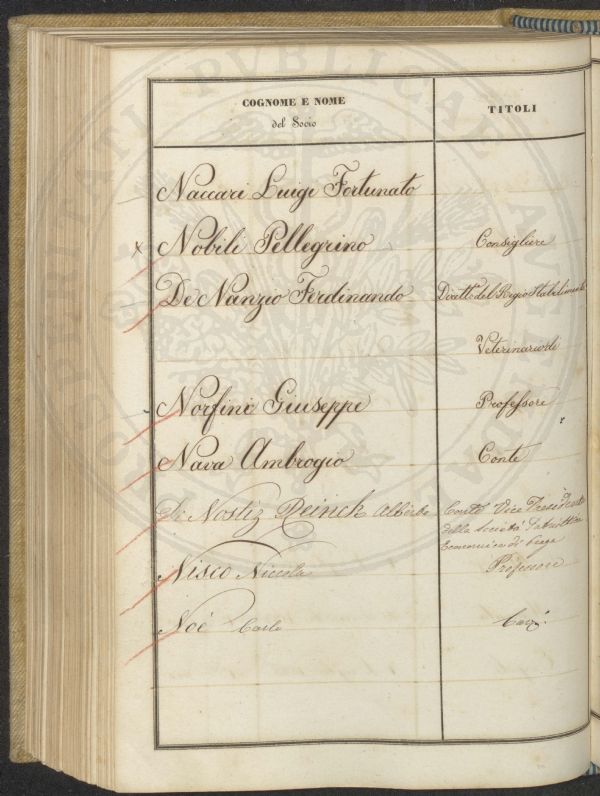 COGNOME E NOME
del Socio
TITOLI
Naccari Luigi Fortunato
Nobili Pellegrino Consigliere
De Nanzio Ferdinando Dirett.e del Regio Stabilimento
Veterinario di
Norfini Giuseppe Professore
Nava Ambrogio Conte
De Nostiz Reinek Alberto Conte Vice Presidente
della Società Patriottica
Economica di Praga
Nisco Niccola Professore
Noé Carlo Cav.